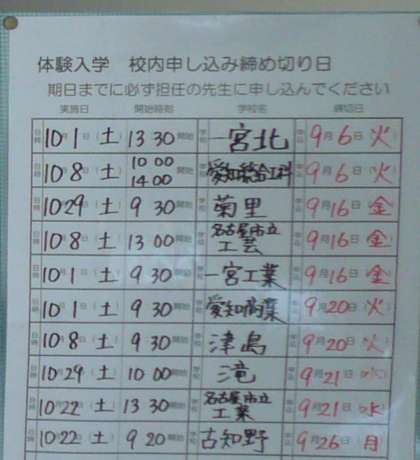 体験入学　校内申し込み締め切り日
期日までに必ず担任の先生に申し込んでください
実施日　開始時刻　学校名　締切日
日時 10月1日(土) 13 30 開始 学校 一宮北 申込 9月6日(火)
日時 10月8日(土) 10 00 14 00 開始 学校 愛知総合工科 申込 9月6日(火)
日時 10月29日(土) 9 30 開始 学校 菊里 申込 9月16日(金)
日時 10月8日(土) 13 00 開始 学校 名古屋市立工芸 申込 9月16日(金)
日時 10月1日(土) 9 30 開始 学校 一宮工業 申込 9月16日(金)
日時 10月1日(土) 9 30 開始 学校 愛知商業 申込 9月20日(火)
日時 10月8日(土) 9 30 開始 学校 津島 申込 9月20日(火)
日時 10月29日(土) 10 00 開始 学校 滝 申込 9月21日(水)
日時 10月22日(土) 13 30 開始 学校 名古屋市立工業 申込 9月21日(水)
日時 10月22日(土) 9 20 開始 学校 古知野 申込 9月26日(月)